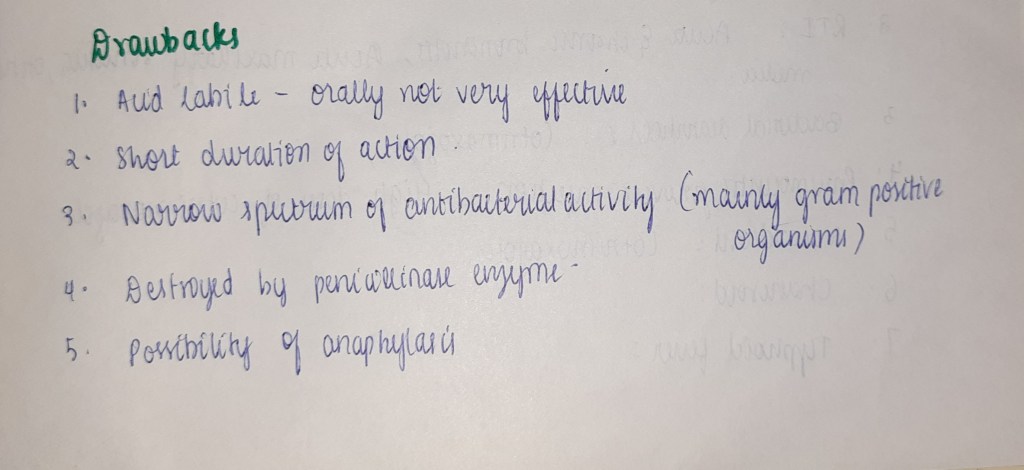 Drawbacks
1. Acid labile - orally not very effective
2. Short duration of action.
3. Narrow spectrum of antibacterial activity (mainly gram positive
organisms)
4. Destroyed by penicillinase enzyme -
5. Possibility of anaphylaxis